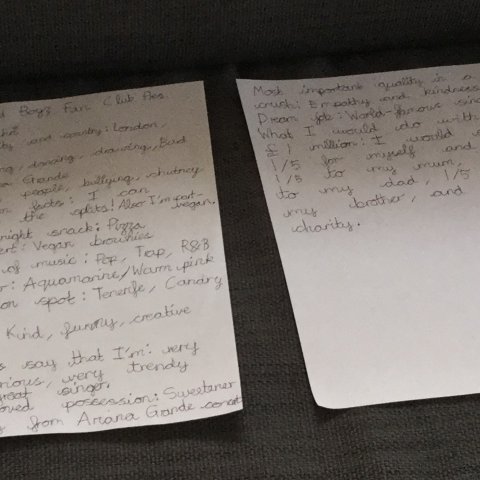 Boys Fan Club Pres.
and country: London,
, dancing, drawing, Bad
Grande
people, bullying, chutney
facts: I can
the splits! Also I'm part-
vegan.
night snack: Pizza
ert: Vegan brownies
of music: Pop, Trap, R&B
r: Aquamarine/Warm pink
on spot: Tenerife, Canary
Kind, funny, creative
s say that I'm: very
rious, very trendy
great singer.
oved possession: Sweetener
from Ariana Grande concert
Most important quality in a
crush: Empathy and kindness
Dream job: World-famous sing
What I would do with
£1 million: I would s
1/5 for myself and
to my mum, 1/5
to my dad, 1/5
my brother, and
charity.